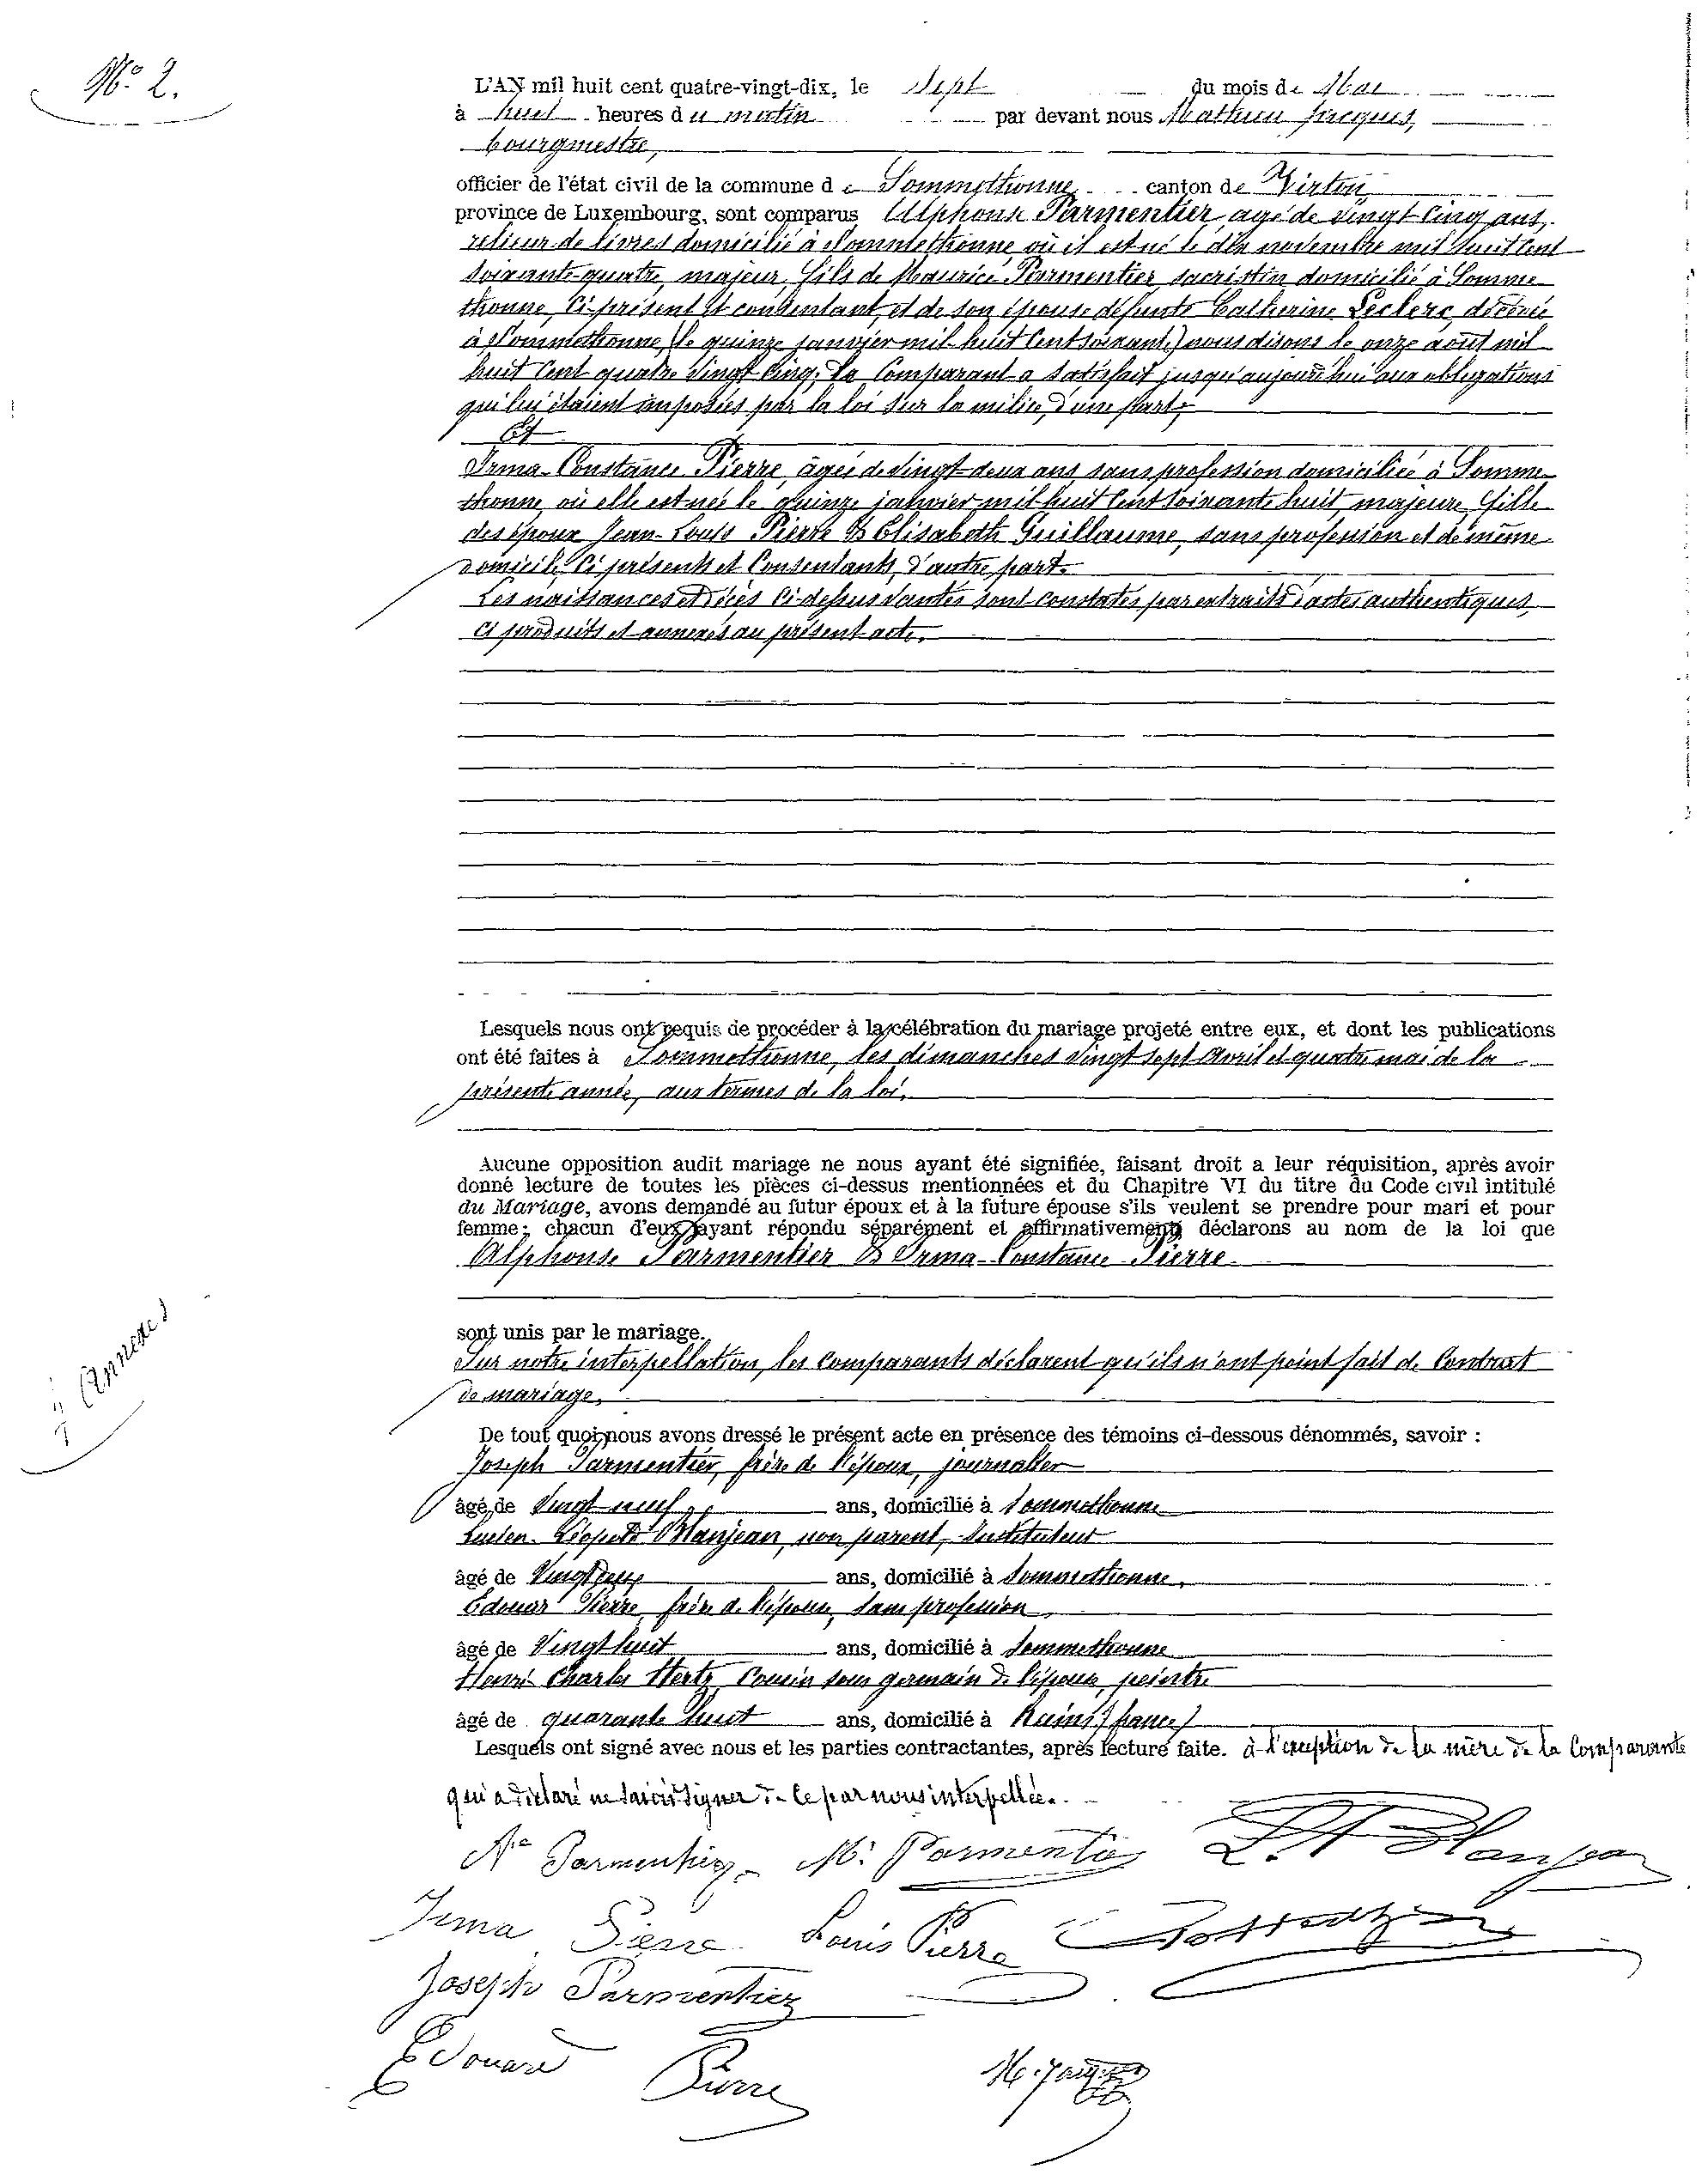 No 2.
L'AN mil huit cent quatre-vingt-dix, le Sept du mois de Mai
à huit heures du matin par devant nous Mathieu Jacques,
bourgmestre,
officier de l'état civil de la commune de Sommethonne canton de Virton
province de Luxembourg, sont comparus Alphonse Parmentier, agé de vingt cinq ans,
relieur de livres domicilié à Sommethonne où il est né le dix novembre mil huit cent
soixante-quatre, majeur, fils de Maurice Parmentier sacristin domicilié à Somme-
thonne, ci-présent et consentant, et de son épouse défunte Catherine Leclerc, décédée
à Sommethonne, (le quinze janvier mil huit cent soixante) nous disons le onze août mil
huit cent quatre vingt cinq. Le comparant a satisfait jusqu'aujourd'hui aux obligations
qui lui étaient imposées par la loi sur la milice, d'une part;
Et
Irma-Constance Pierre, agée de vingt-deux ans, sans profession domiciliée à Somme-
thonne, où elle est née le quinze janvier mil huit cent soixante huit, majeure, fille
des époux Jean-Louis Pierre & Elisabeth Guillaume, sans profession et de même
domicile, ci présents et consentants, d'autre part.
Les naissances et décès ci-dessus vantés sont constatés par extraits d'actes authentiques,
ci produits et annexés au présent acte.
Lesquels nous ont requis de procéder à la célébration du mariage projeté entre eux, et dont les publications
ont été faites à Sommethonne, les dimanches vingt sept Avril et quatre mai de la
présente année, aux termes de la loi.
Aucune opposition audit mariage ne nous ayant été signifiée, faisant droit a leur réquisition, après avoir
donné lecture de toutes les pièces ci-dessus mentionnées et du Chapitre VI du titre du Code civil intitulé
du Mariage, avons demandé au futur époux et à la future épouse s'ils veulent se prendre pour mari et pour
femme; chacun d'eux ayant répondu séparément et affirmativement, déclarons au nom de la loi que
Alphonse Parmentier & Irma-Constance Pierre
sont unis par le mariage.
Sur notre interpellation, les comparants déclarent qu'ils n'ont point fait de Contrat
de mariage.
Annexes
De tout quoi nous avons dressé le présent acte en présence des témoins ci-dessous dénommés, savoir :
Joseph Parmentier, frère de l'époux, journalier
âgé de Vingt-neuf ans, domicilié à Sommethonne
Lucien-Léopold Manjean, non parent, Instituteur
âgé de Vingt deux ans, domicilié à Sommethonne,
Edouard Pierre, frère de l'épouse, sans profession
âgé de Vingt huit ans, domicilié à Sommethonne
Henri Charles Hertz, Cousin sous germain de l'époux, peintre
âgé de quarante huit ans, domicilié à Reims (france)
Lesquels ont signé avec nous et les parties contractantes, après lecture faite. à l'exception de la mère de la Comparante
qui a déclaré ne savoir signer de ce par nous interpellée.
Ase Parmentier M. Parmentier
Irma Pierre Louis Pierre
Joseph Parmentier
Edouard Pierre M. Jacques